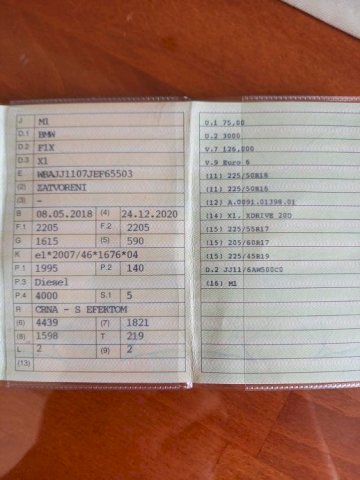 J M1
D.1 BMW
D.2 F1X
D.3 X1
E WBAJJ1107JEF65503
(2) ZATVORENI
(3) -
B 08.05.2018 (4) 24.12.2020
F.1 2205 F.2 2205
G 1615 (5) 590
K e1*2007/46*1676*04
P.1 1995 P.2 140
P.3 Diesel
P.4 4000 S.1 5
R CRNA - S EFEKTOM
(6) 4439 (7) 1821
(8) 1598 T 219
L 2 (9) 2
(13)
U.1 75,00
U.2 3000
V.7 126,000
V.9 Euro 6
(11) 225/50R18
(11) 225/50R18
(12) A.0091.01398.01
(14) X1, XDRIVE 20D
(15) 225/55R17
(15) 205/60R17
(15) 225/45R19
D.2 JJ11/6AW500C0
(16) M1